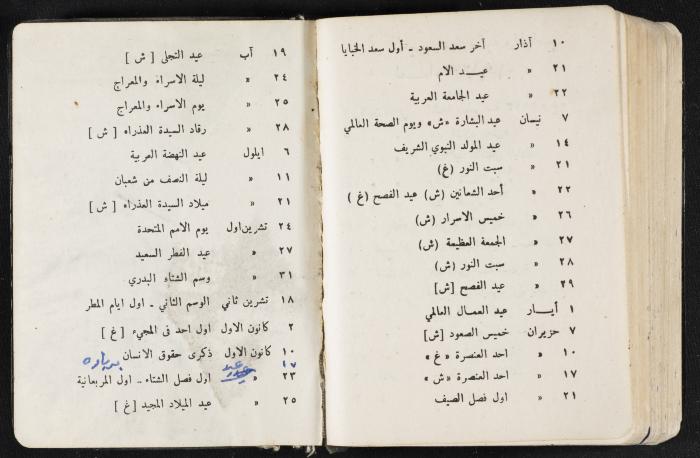 ١٠ آذار آخر سعد السعود - أول سعد الخبايا
٢١ « عيد الام
٢٢ « عيد الجامعة العربية
٧ نيسان عيد البشارة «ش» ويوم الصحة العالمي
١٤ « عيد المولد النبوي الشريف
٢١ « سبت النور (غ)
٢٢ « أحد الشعانين (ش) عيد الفصح (غ)
٢٦ « خميس الاسرار (ش)
٢٧ « الجمعة العظيمة (ش)
٢٨ « سبت النور (ش)
٢٩ « عيد الفصح [ش]
١ أيــار عيد العمال العالمي
٧ حزيران خميس الصعود [ش]
١٠ « احد العنصرة «غ»
١٧ « احد العنصرة «ش»
٢١ « اول فصل الصيف
١٩ آب عيد التجلي [ش]
٢٤ « ليلة الاسراء والمعراج
٢٥ « يوم الاسراء والمعراج
٢٨ « رقاد السيدة العذراء [ش]
٦ ايلول عيد النهضة العربية
١١ « ليلة النصف من شعبان
٢١ « ميلاد السيدة العذراء [ش]
٢٤ تشرين اول يوم الامم المتحدة
٢٧ « عيد الفطر السعيد
٣١ « وسم الشتاء البدري
١٨ تشرين ثاني الوسم الثاني - اول ايام المطر
٢ كانون الاول اول احد في المجيء [غ]
١٠ كانون الاول ذكرى حقوق الانسان
١٧ عيد
٢٣ « اول فصل الشتاء - اول المربعانية
٢٥ « عيد الميلاد المجيد [غ]